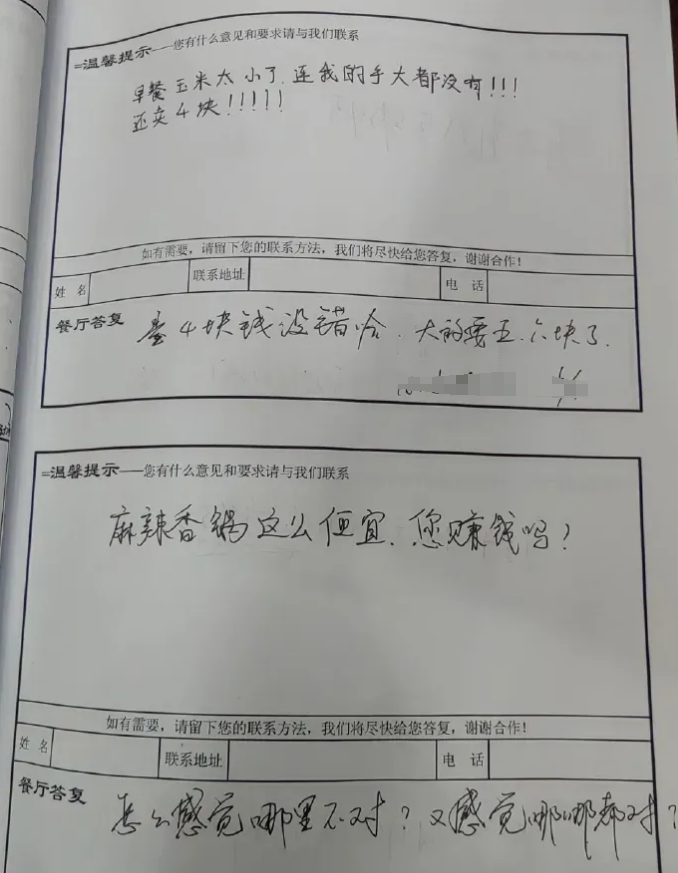 =温馨提示——您有什么意见和要求请与我们联系
早餐玉米太小了.连我的手大都没有!!!
还卖4块!!!!!
如有需要，请留下您的联系方法，我们将尽快给您答复，谢谢合作!
姓 名 联系地址 电 话
餐厅答复 卖4块钱没错哈.大的要五.六块了.
=温馨提示——您有什么意见和要求请与我们联系
麻辣香锅这么便宜.您赚钱吗?
如有需要，请留下您的联系方法，我们将尽快给您答复，谢谢合作!
姓 名 联系地址 电 话
餐厅答复 怎么感觉哪里不对?又感觉哪哪都对?